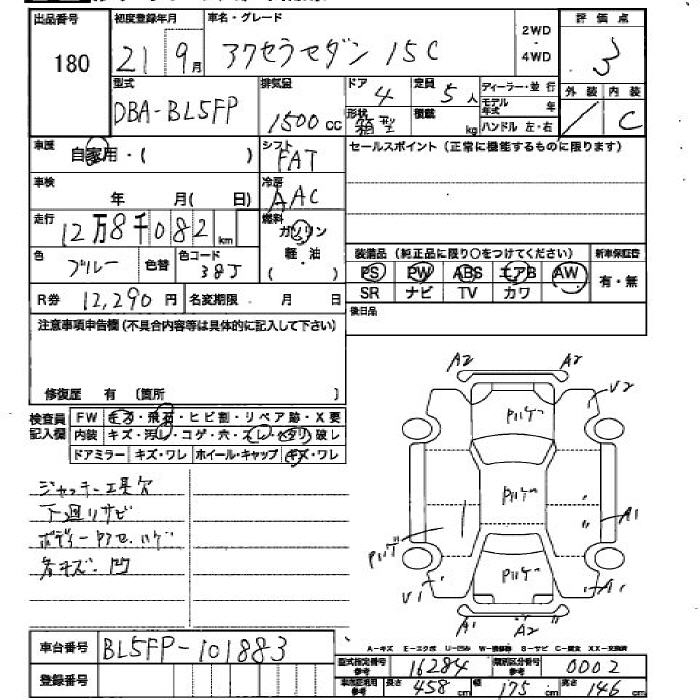 出品番号
180
初度登録年月
21 9月
車名・グレード
アクセラセダン 15C
2WD
・
4WD
評価点
3
外装 内装
/ C
型式
DBA-BL5FP
排気量
1500 cc
ドア
4
形状
箱型
定員
5人
積載
kg
ディーラー・並行
モデル年式 年
ハンドル 左・右
車歴
自家用・( )
シフト
FAT
セールスポイント(正常に機能するものに限ります)
車検
年 月( 日)
冷房
AAC
走行
12万8千082 km
燃料
ガソリン
軽・油
( )
色
ブルー
色替
色コード
38J
装備品(純正品に限り○をつけてください)
PS PW ABS エアB AW
SR ナビ TV カワ
新車保証書
有・無
R券 12,290円
名変期限 月 日
後日品
注意事項申告欄(不具合内容等は具体的に記入して下さい)
修復歴 有 〔箇所 〕
検査員記入欄
FW キズ・飛石・ヒビ割・リペア跡・X要
内装 キズ・汚レ・コゲ・穴・スレ・ヘタリ・破レ
ドアミラー キズ・ワレ ホイール・キャップ キズ・ワレ
ジャッキー工具欠
下廻リサビ
ボディーPアセ、ハゲ
各キズ・凹
A2 A2
V2
Pハゲ
Pハゲ
〃 A1
Pハゲ
Pハゲ
V1 A1
A1 A2
A-キズ E-エクボ U-凹み W-補修跡 S-サビ C-腐食 XX-交換済
車台番号 BL5FP-101883
登録番号
型式指定番号参考 16284
類別区分番号参考 0002
車両寸法参考 長さ 458 cm 幅 175 cm 高さ 146 cm